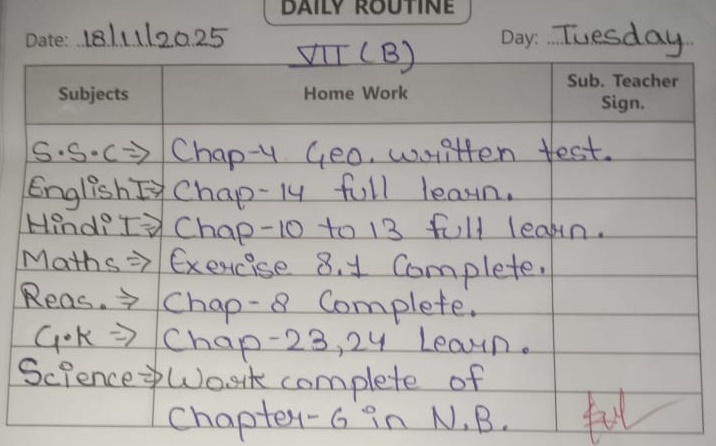 DAILY ROUTINE
Date: 18/11/2025 Day: Tuesday
VII (B)
Subjects Home Work Sub. Teacher Sign.
S.S.C ⇒ Chap-4 Geo. written test.
English I ⇒ Chap-14 full learn.
Hindi I ⇒ Chap-10 to 13 full learn.
Maths ⇒ Exercise 8.1 Complete.
Reas. ⇒ Chap-8 Complete.
G.K ⇒ Chap-23,24 Learn.
Science ⇒ Work complete of
Chapter-6 in N.B.